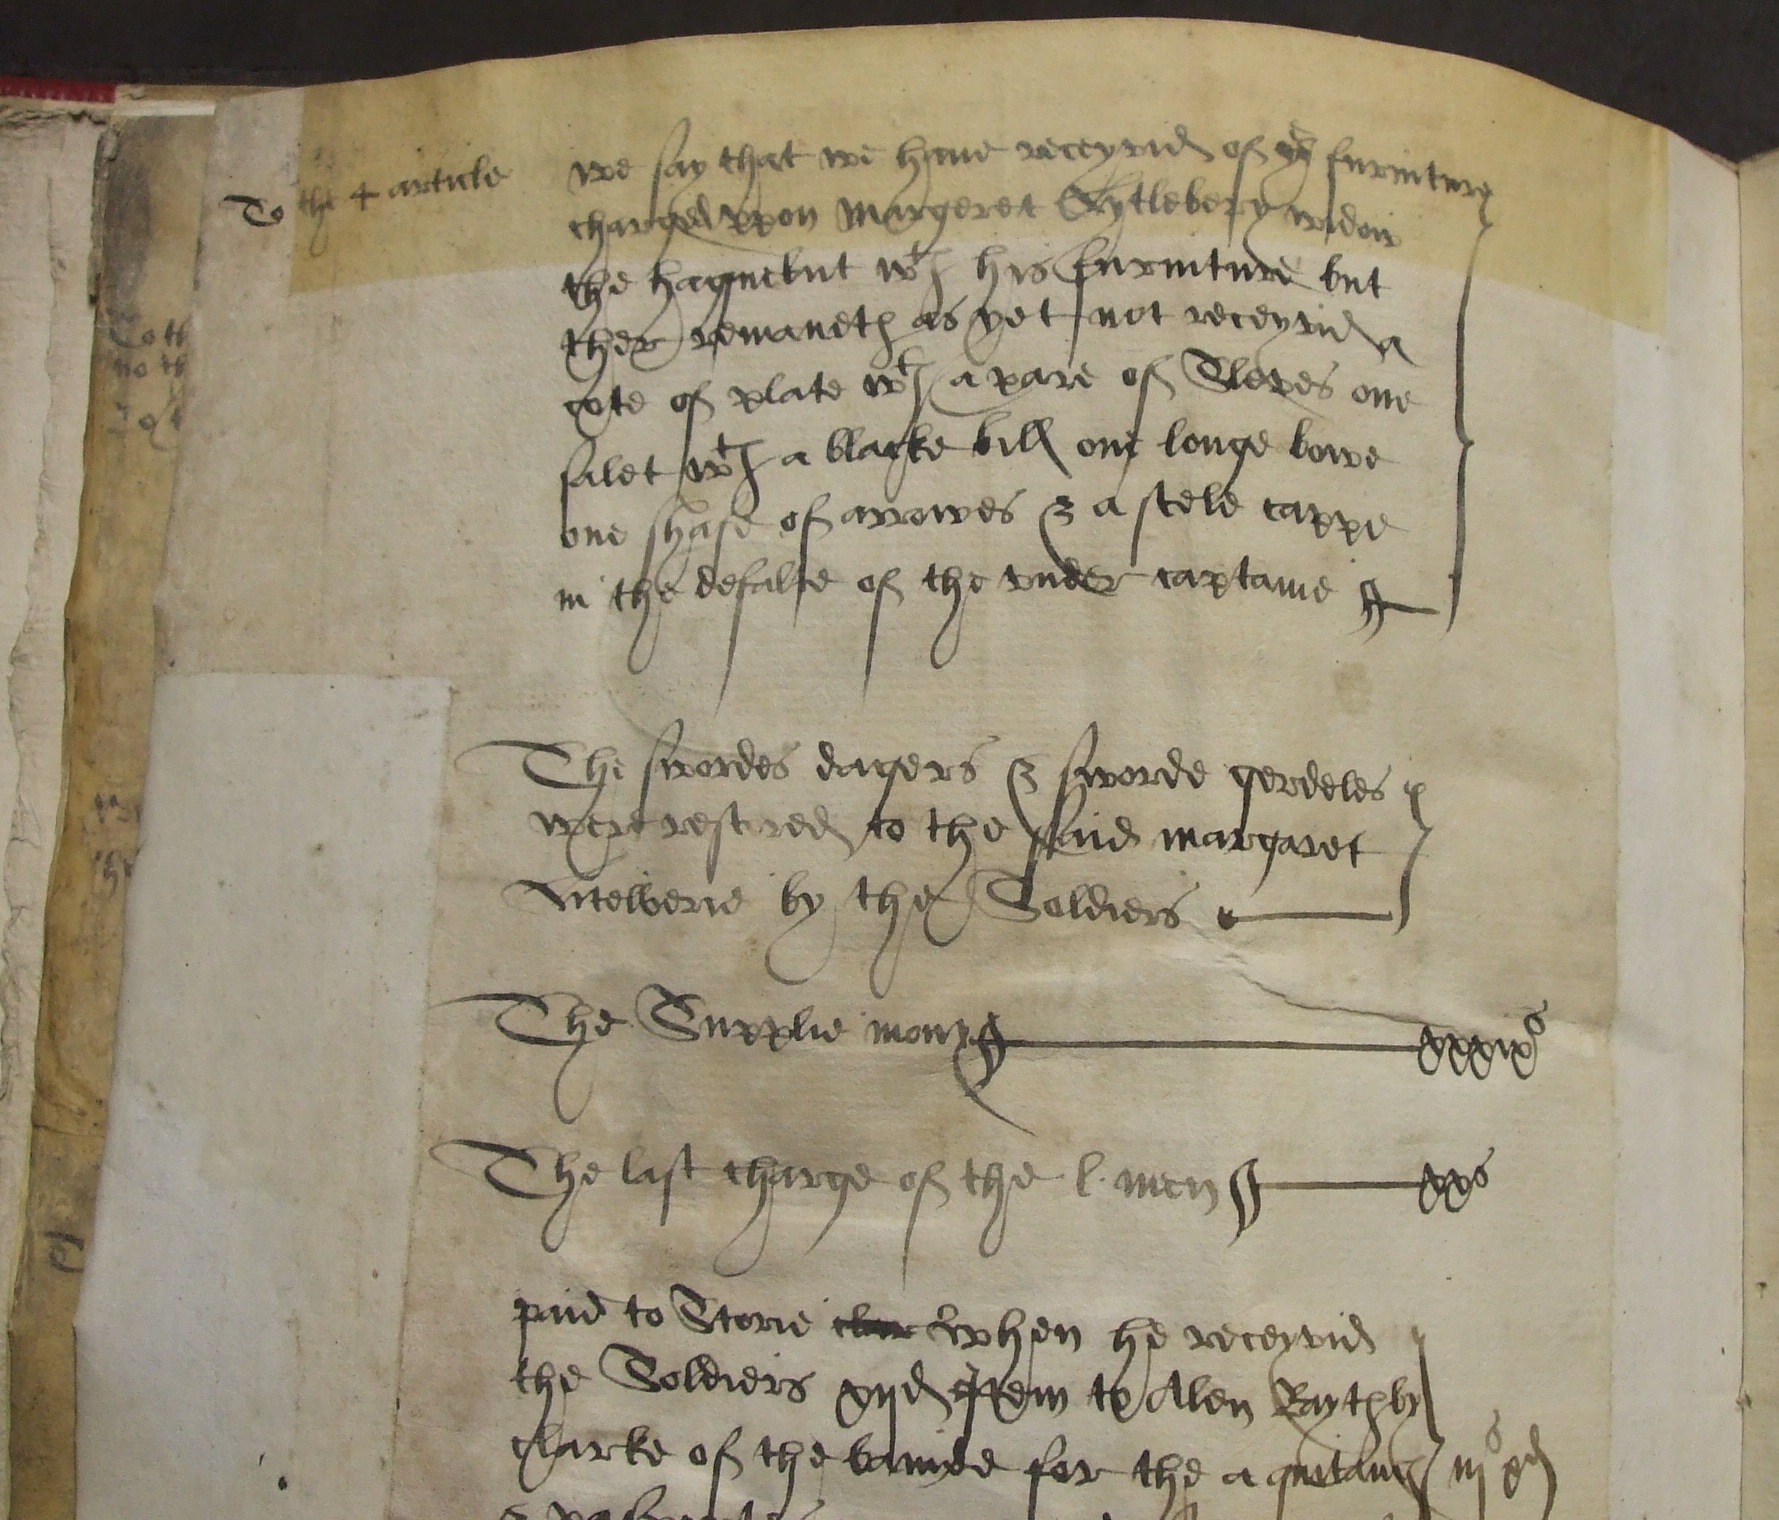 To the 4 article
we say that we have receyvid of furniture
charged vpon Margeret Kytlebery widow
the haquebut wth his furniture but
ther remaneth as yet not receyvid a
cote of plate wth a pare of Sleves one
salet wth a blacke bill one longe bowe
one shafe of arrowes & a stele cappe
in the defalte of the vnder captaine
The swordes dagers & sworde gerdeles
were restored to the said margaret
by the Soldiers
The Supplie mony xxxixs
The last charge of the l. men xxs
paid to Storie when he receyvid
the Soldiers xijd Item to Alen Raythby
clarke of the bannde for the aquitance iijs xd